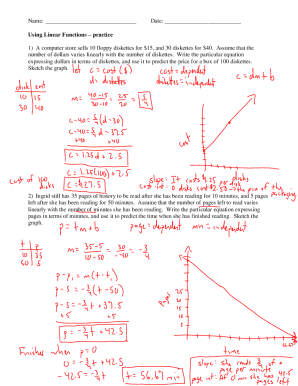 Name: Date:
Using Linear Functions – practice
1) A computer store sells 10 floppy diskettes for $15, and 30 diskettes for $40. Assume that the
number of dollars varies linearly with the number of diskettes. Write the particular equation
expressing dollars in terms of diskettes, and use it to predict the price for a box of 100 diskettes.
Sketch the graph.
let c = cost ($)
d = diskettes
cost = dependent
diskettes = independent
c = dm + b
diskt cost
10 15
30 40
m = 40-15 / 30-10 = 25/20 = 5/4
c-40 = 5/4 (d-30)
c-40 = 5/4 d - 37.5
+40 +40
c = 1.25d + 2.5
cost of 100 disks
c = 1.25(100) + 2.5
c = $127.5
cost
slope: It costs $1.25 per disk
cost-int: 0 disks cost $2.50 - the price of the packaging
2) Ingrid still has 35 pages of history to be read after she has been reading for 10 minutes, and 5 pages
left after she has been reading for 50 minutes. Assume that the number of pages left to read varies
linearly with the number of minutes she has been reading. Write the particular equation expressing
pages in terms of minutes, and use it to predict the time when she has finished reading. Sketch the
graph.
p = tm + b
page = dependent min = independent
t p
10 35
50 5
m = 35-5 / 10-50 = 30/-40 = -3/4
p-p₁ = m(t-t₁)
p-5 = -3/4 (t-50)
p-5 = -3/4 t + 37.5
+5 +5
p = -3/4 t + 42.5
Finishes when p = 0
0 = -3/4 t + 42.5
-42.5 = -3/4 t
t = 56.67 min
pages
time
slope: she reads 3/4 of a
page per minute
page int: At 0 min she has 42.5
pages left